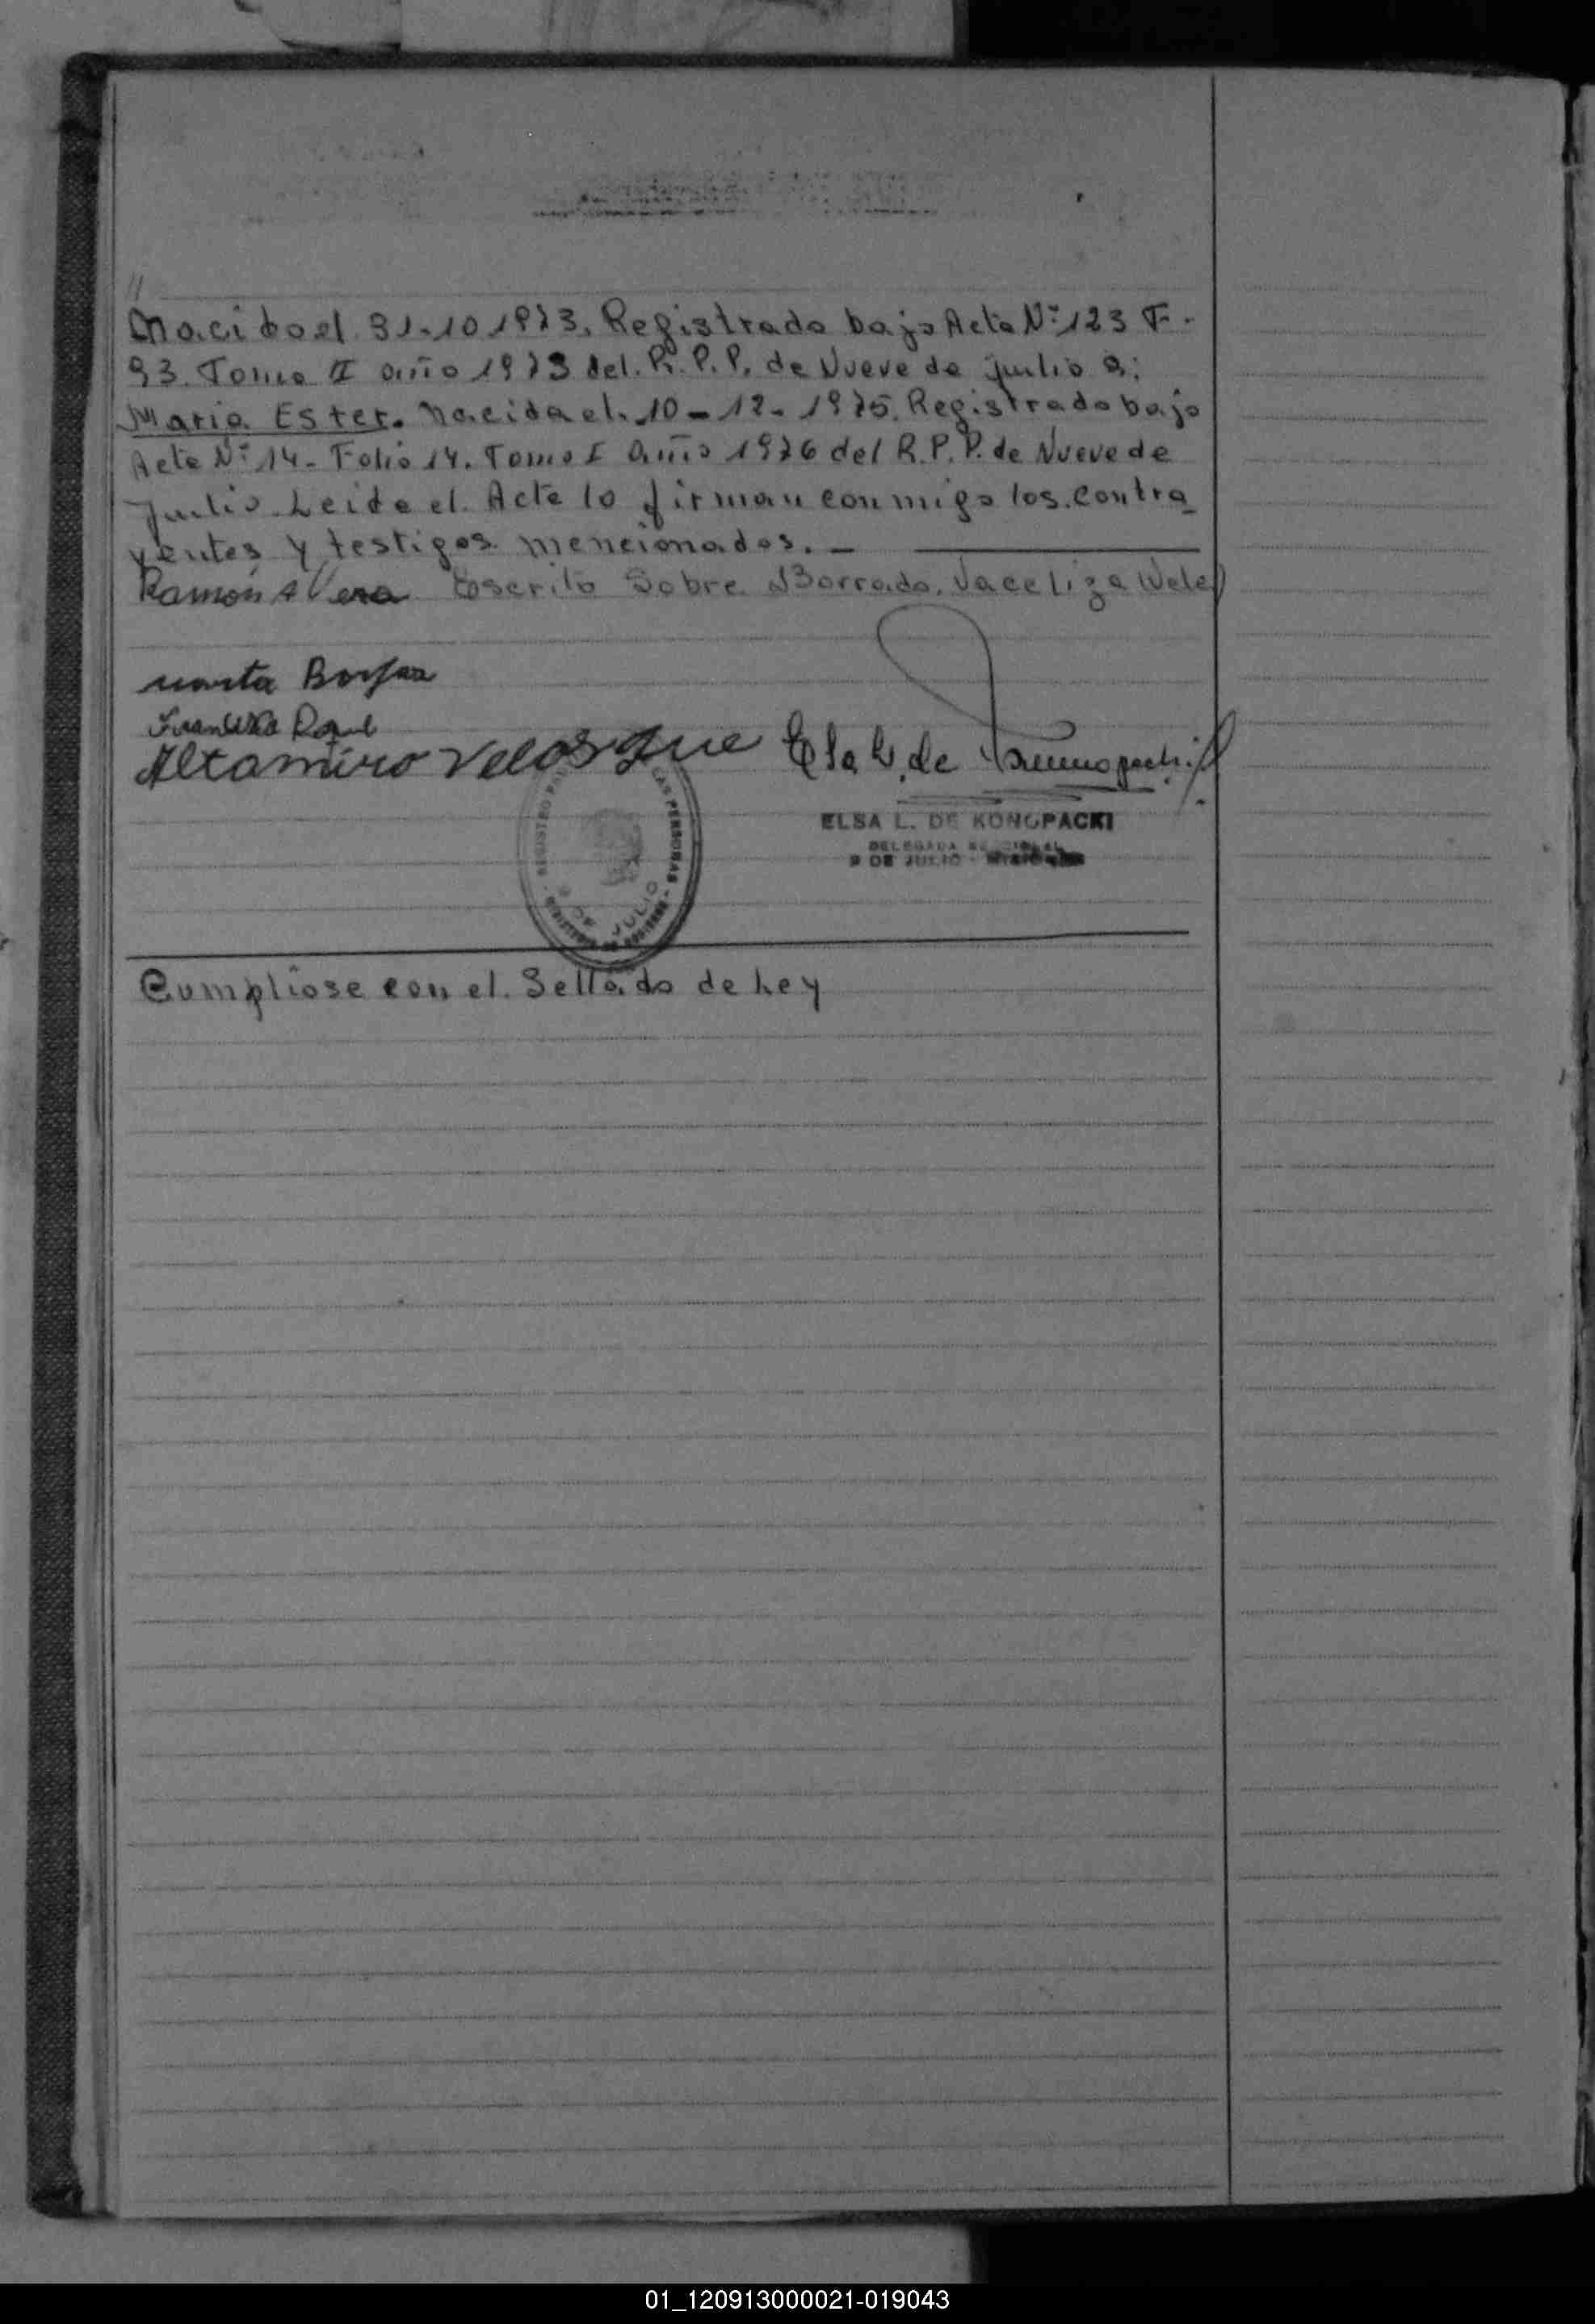 //
Nacido el. 31-10 1973. Registrado bajo Acta Nº 123 F.
93. Tomo II año 1973 del. R.P.P. de Nueve de Julio a;
Maria Ester. Nacida el. 10-12-1975. Registrado bajo
Acta Nº 14- Folio 14. Tomo I año 1976 del R.P.P. de Nueve de
Julio. Leida el Acta lo firman conmigo los contra_
yentes y testigos mencionados. —
Ramón A Vera Escrito Sobre Borrado. Vale
marta Borjas
Altamiro Velosque Elsa L. de
ELSA L. DE KONOPACKI
DELEGADA
9 DE JULIO -
REGISTRO LAS PERSONAS
9 DE JULIO
Cumpliose con el. Sellado de Ley
01_120913000021-019043